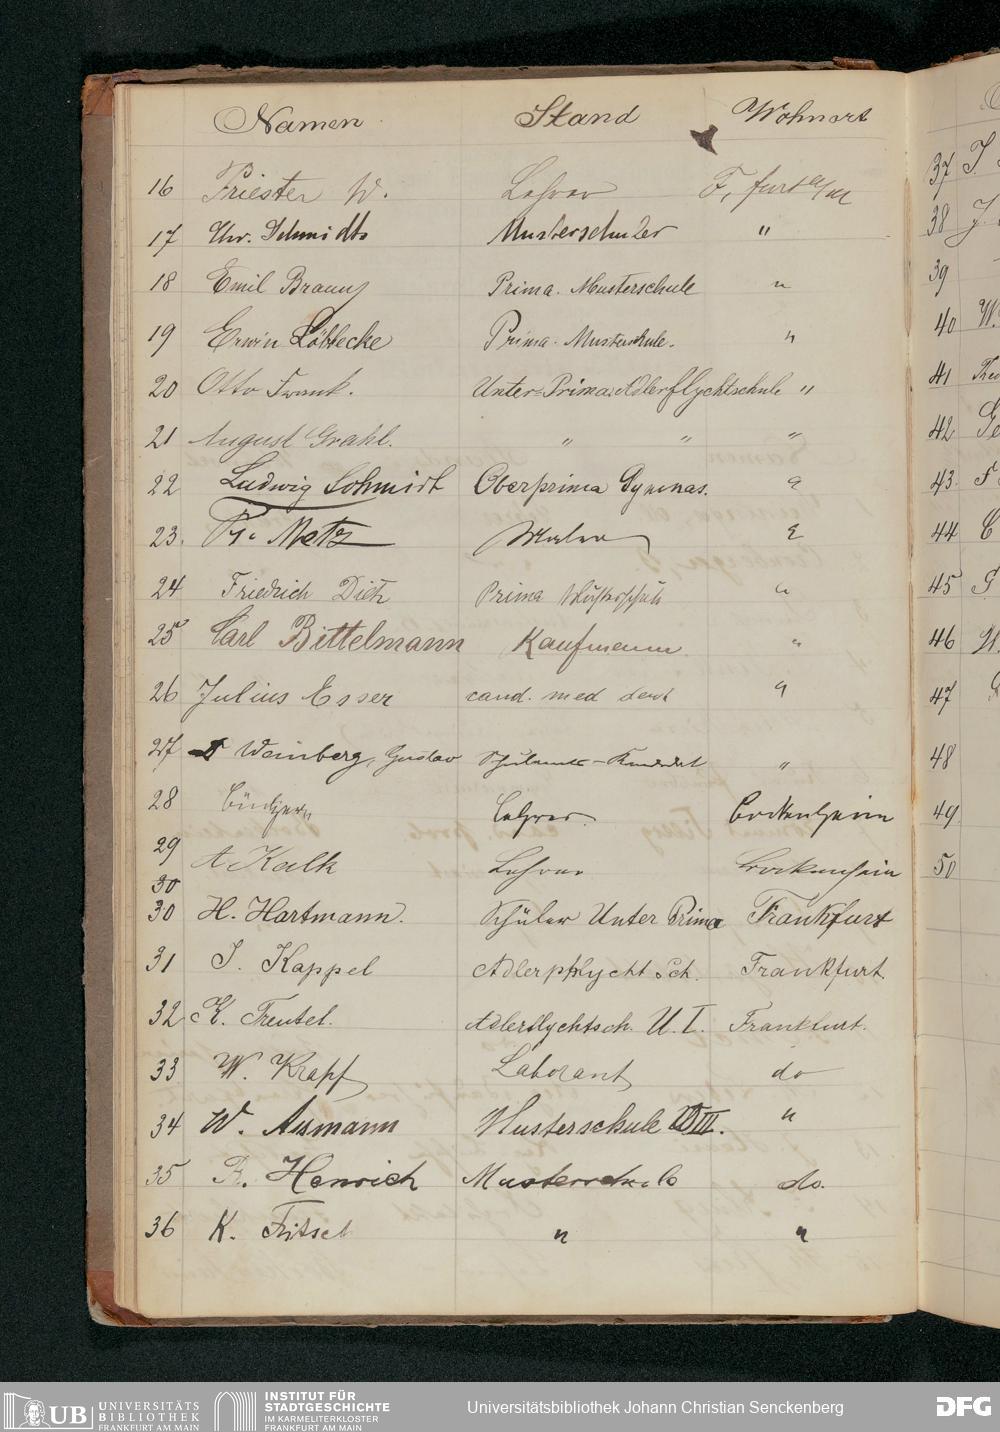 Namen Stand Wohnort
16 Priester W. Lehrer F, furt a/M
17 Chr. Schmidt Musterschüler "
18 Emil Braun Prima. Musterschule "
19 Erwin Löbbecke Prima. Musterschule. "
20 Otto Frank. Unter=Prima Adlerflychtschule "
21 August Grahl. " " "
22 Ludwig Schmidt Oberprima Gymnas. "
23. Fr. Metz Maler "
24 Friedrich Dietz Prima "
25 Carl Bittelmann Kaufmann "
26 Julius Esser cand. med dent "
27 Weinberg, Gustav Schulamts-Kandidat "
28 Lehrer. Bockenheim
29 A Kalk Lehrer Bockenheim
30
30 H. Hartmann. Schüler Unter Prima Frankfurt
31 J. Kappel Adlerphlycht Sch. Frankfurt
32 K. Treutel. Adlerflychtsch. U. I. Frankfurt.
33 W. Krapf Laborant do
34 W. Assmann Musterschule III. "
35 R. Henrich Musterschule do.
36 K. Fritsch " "
37 J.
38 J.
39
40 W.
41
42 Ge
43. F
44 C
45 G
46 W.
47
48
49.
50
UB UNIVERSITÄTS BIBLIOTHEK FRANKFURT AM MAIN
INSTITUT FÜR STADTGESCHICHTE IM KARMELITERKLOSTER FRANKFURT AM MAIN
Universitätsbibliothek Johann Christian Senckenberg
DFG